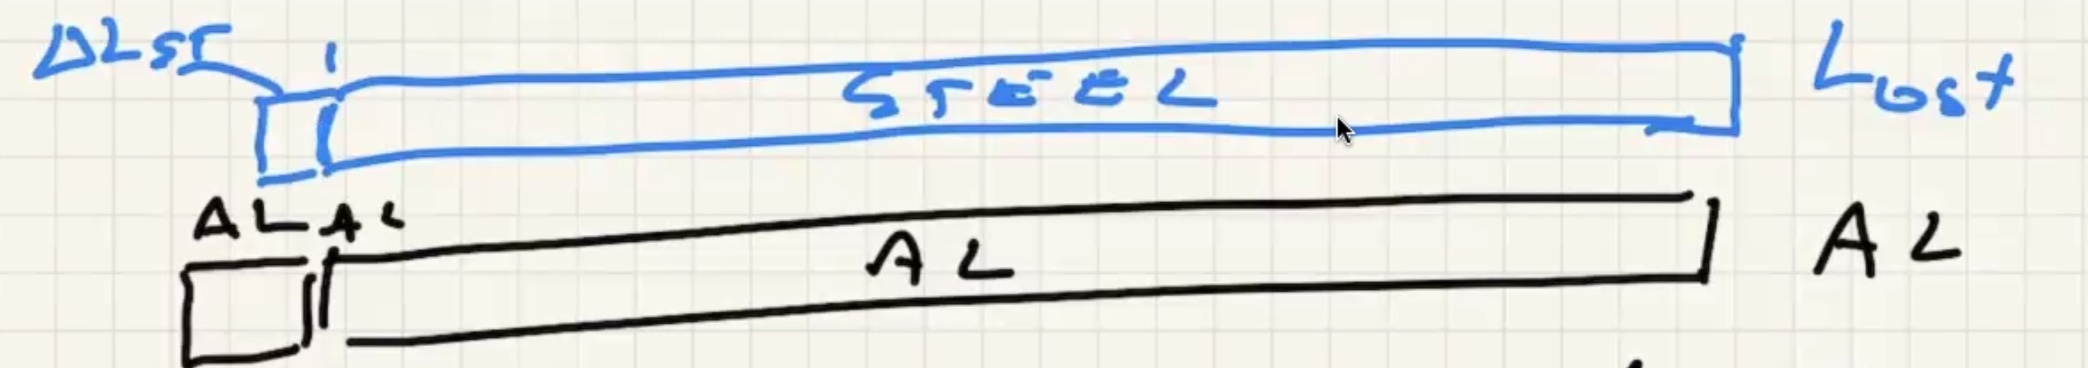 ΔLST
STEEL
LOST
ALAL
AL
AL